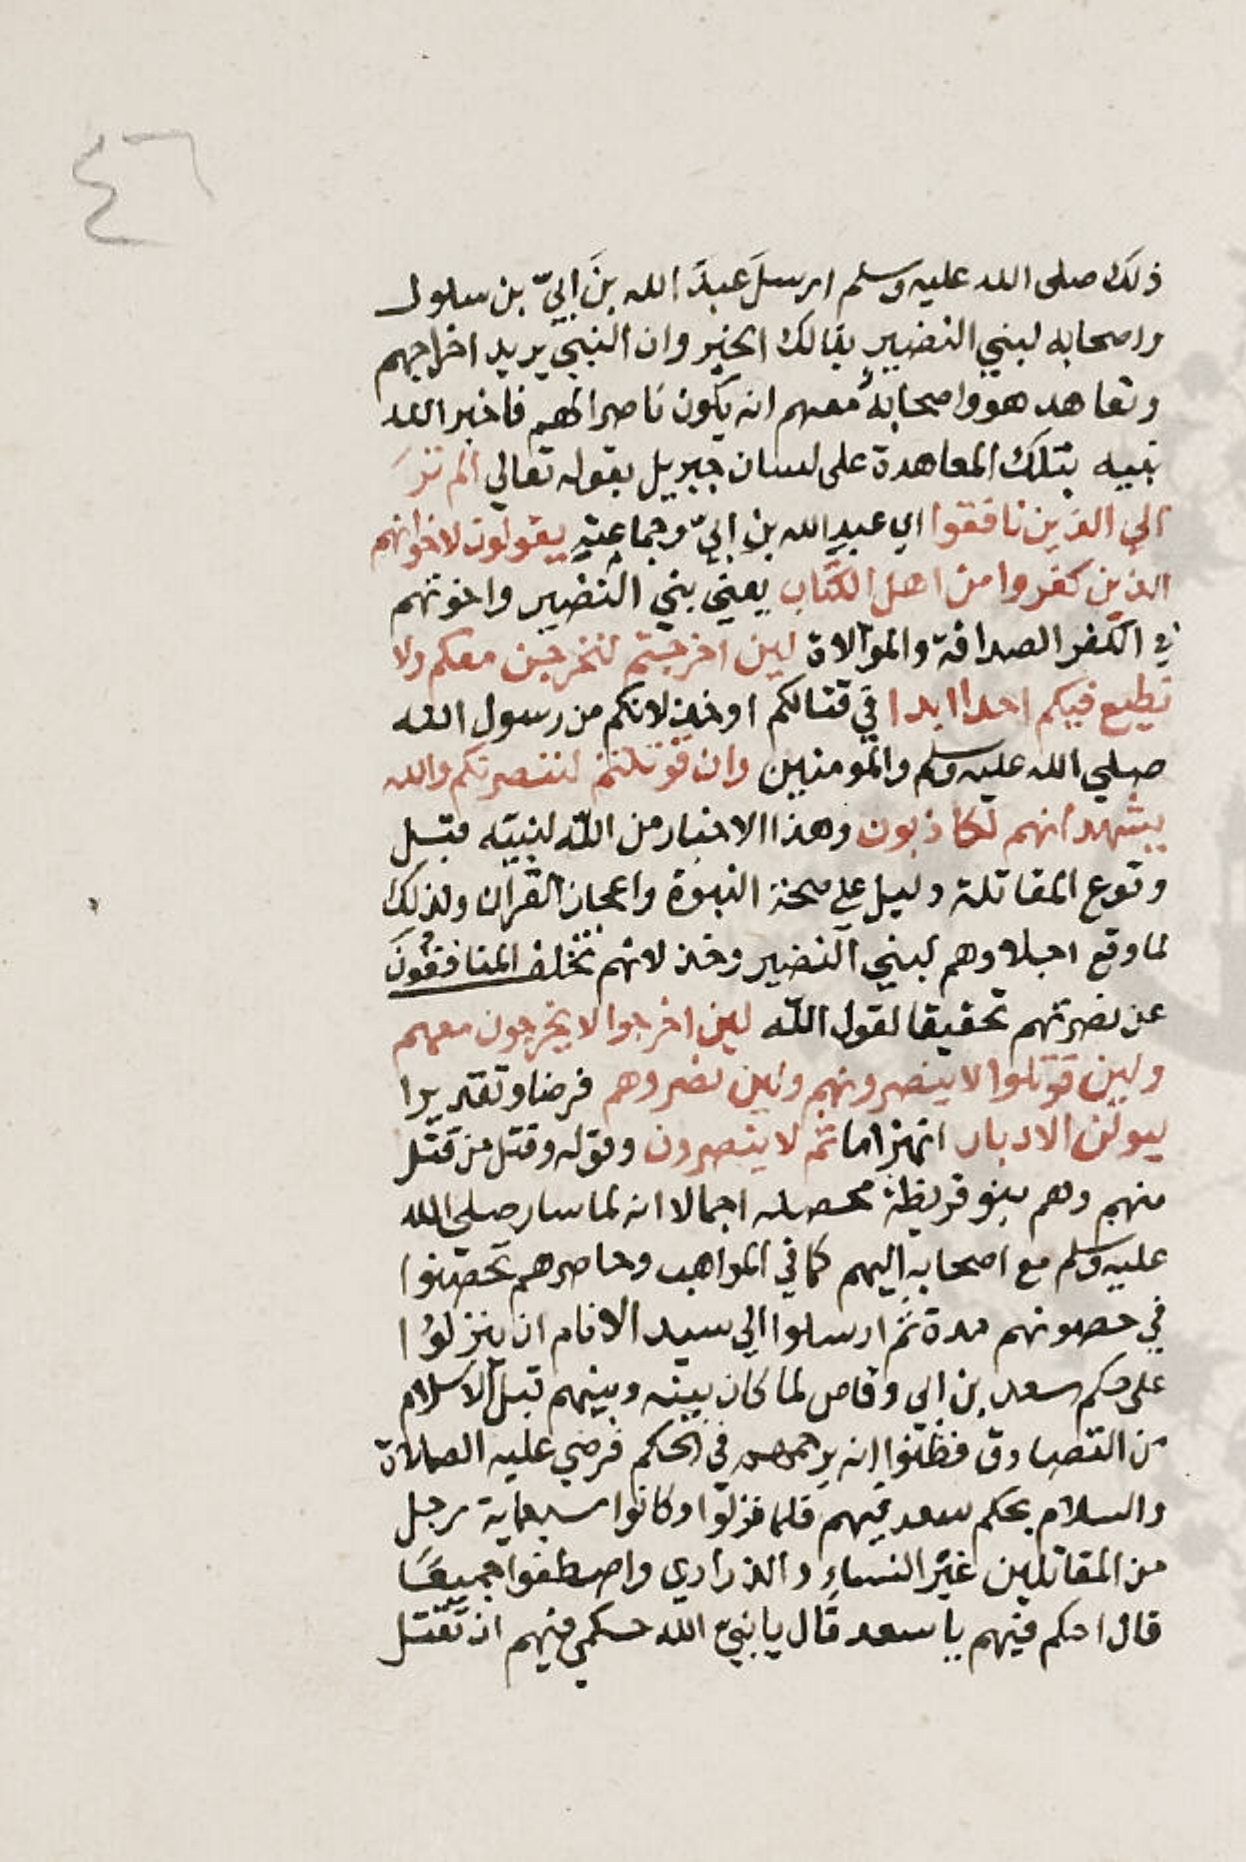 ٤٦
ذلك صلى الله عليه وسلم ارسلَ عبدَ الله بنَ ابيّ بن سلول
واصحابه لبني النضير بذلك الخبر وان النبي يريد اخراجهم
وتعاهد هو واصحابهُ معهم انه يكون ناصرا لهم فاخبر الله
نبيه بتلك المعاهدة على لسان جبريل بقوله تعالي الم ترَ
الي الذين نافقوا اي عبدِ الله بنِ ابيّ وجماعتِهِ يقولون لاخوانهم
الذين كفروا من اهل الكتاب يعني بني النضير واخوتهم
في الكفر الصداقة والموالاة لين اخرجتم لنخرجن معكم ولا
نطيع فيكم احدا ابدا في قتالكم او خذلانكم من رسول الله
صلي الله عليه وسلم والمومنين وان قوتلتم لننصرنكم والله
يشهد انهم لكاذبون وهذا الاخبار من الله لنبيّه قبل
وقوع المقاتلة دليل علي صحة النبوة واعجاز القرآن ولذلك
لما وقع اجلاوهم لبني النضير وخذلانهم تخلف المنافقُونَ
عن نصرتهم تحقيقا لقول الله لين اخرجوا لا يخرجون معهم
ولين قوتلوا لا ينصرونهم ولين نصروهم فرضا وتقديرا
ليولن الادبار انهزاما ثم لا ينصرون وقوله وقتل من قتل
منهم وهم بنو قريظة محصله اجمالا انه لما سار صلى الله
عليه وسلم مع اصحابه اليهم كما في المواهب وحاصرهم تحصنوا
في حصونهم مدة ثم ارسلوا الي سيد الانام ان ينزلوا
على حكم سعد بن ابي وقاص لما كان بينه وبينهم قبل الاسلام
من التصادق فظنوا انه يرحمهم في الحكم فرضي عليه الصلاة
والسلام بحكم سعد فيهم فلما نزلوا وكانوا سبعماية رجل
من المقاتلين غيرَ النساءِ والذراري واصطفوا جميعًا
قال احكم فيهم يا سعد قال يا نبيّ الله حكمي فيهم ان تقتل